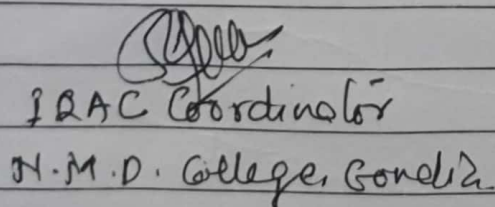 IQAC Coordinator
N.M.D. College, Gondia